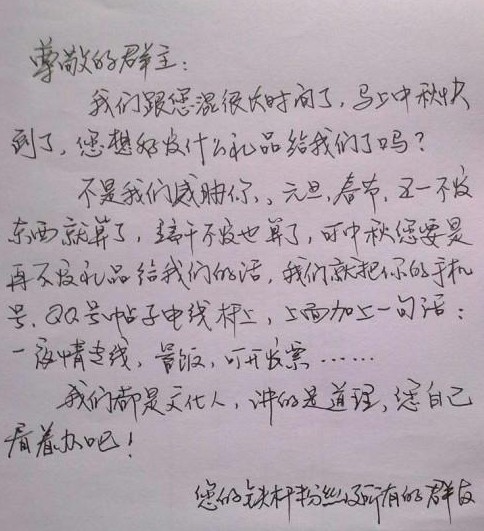 尊敬的群主：
我们跟您混很久时间了，马上中秋快
到了，您想好发什么礼品给我们了吗？
不是我们威胁你，元旦，春节，五一不发
东西就算了，端午不发也算了，可中秋您要是
再不发礼品给我们的话，我们就把你的手机
号、QQ号帖子电线杆上，上面加上一句话：
一夜情专线，包，可开发票……
我们都是文化人，讲的是道理，您自己
看着办吧！
您的铁杆粉丝及所有的群友